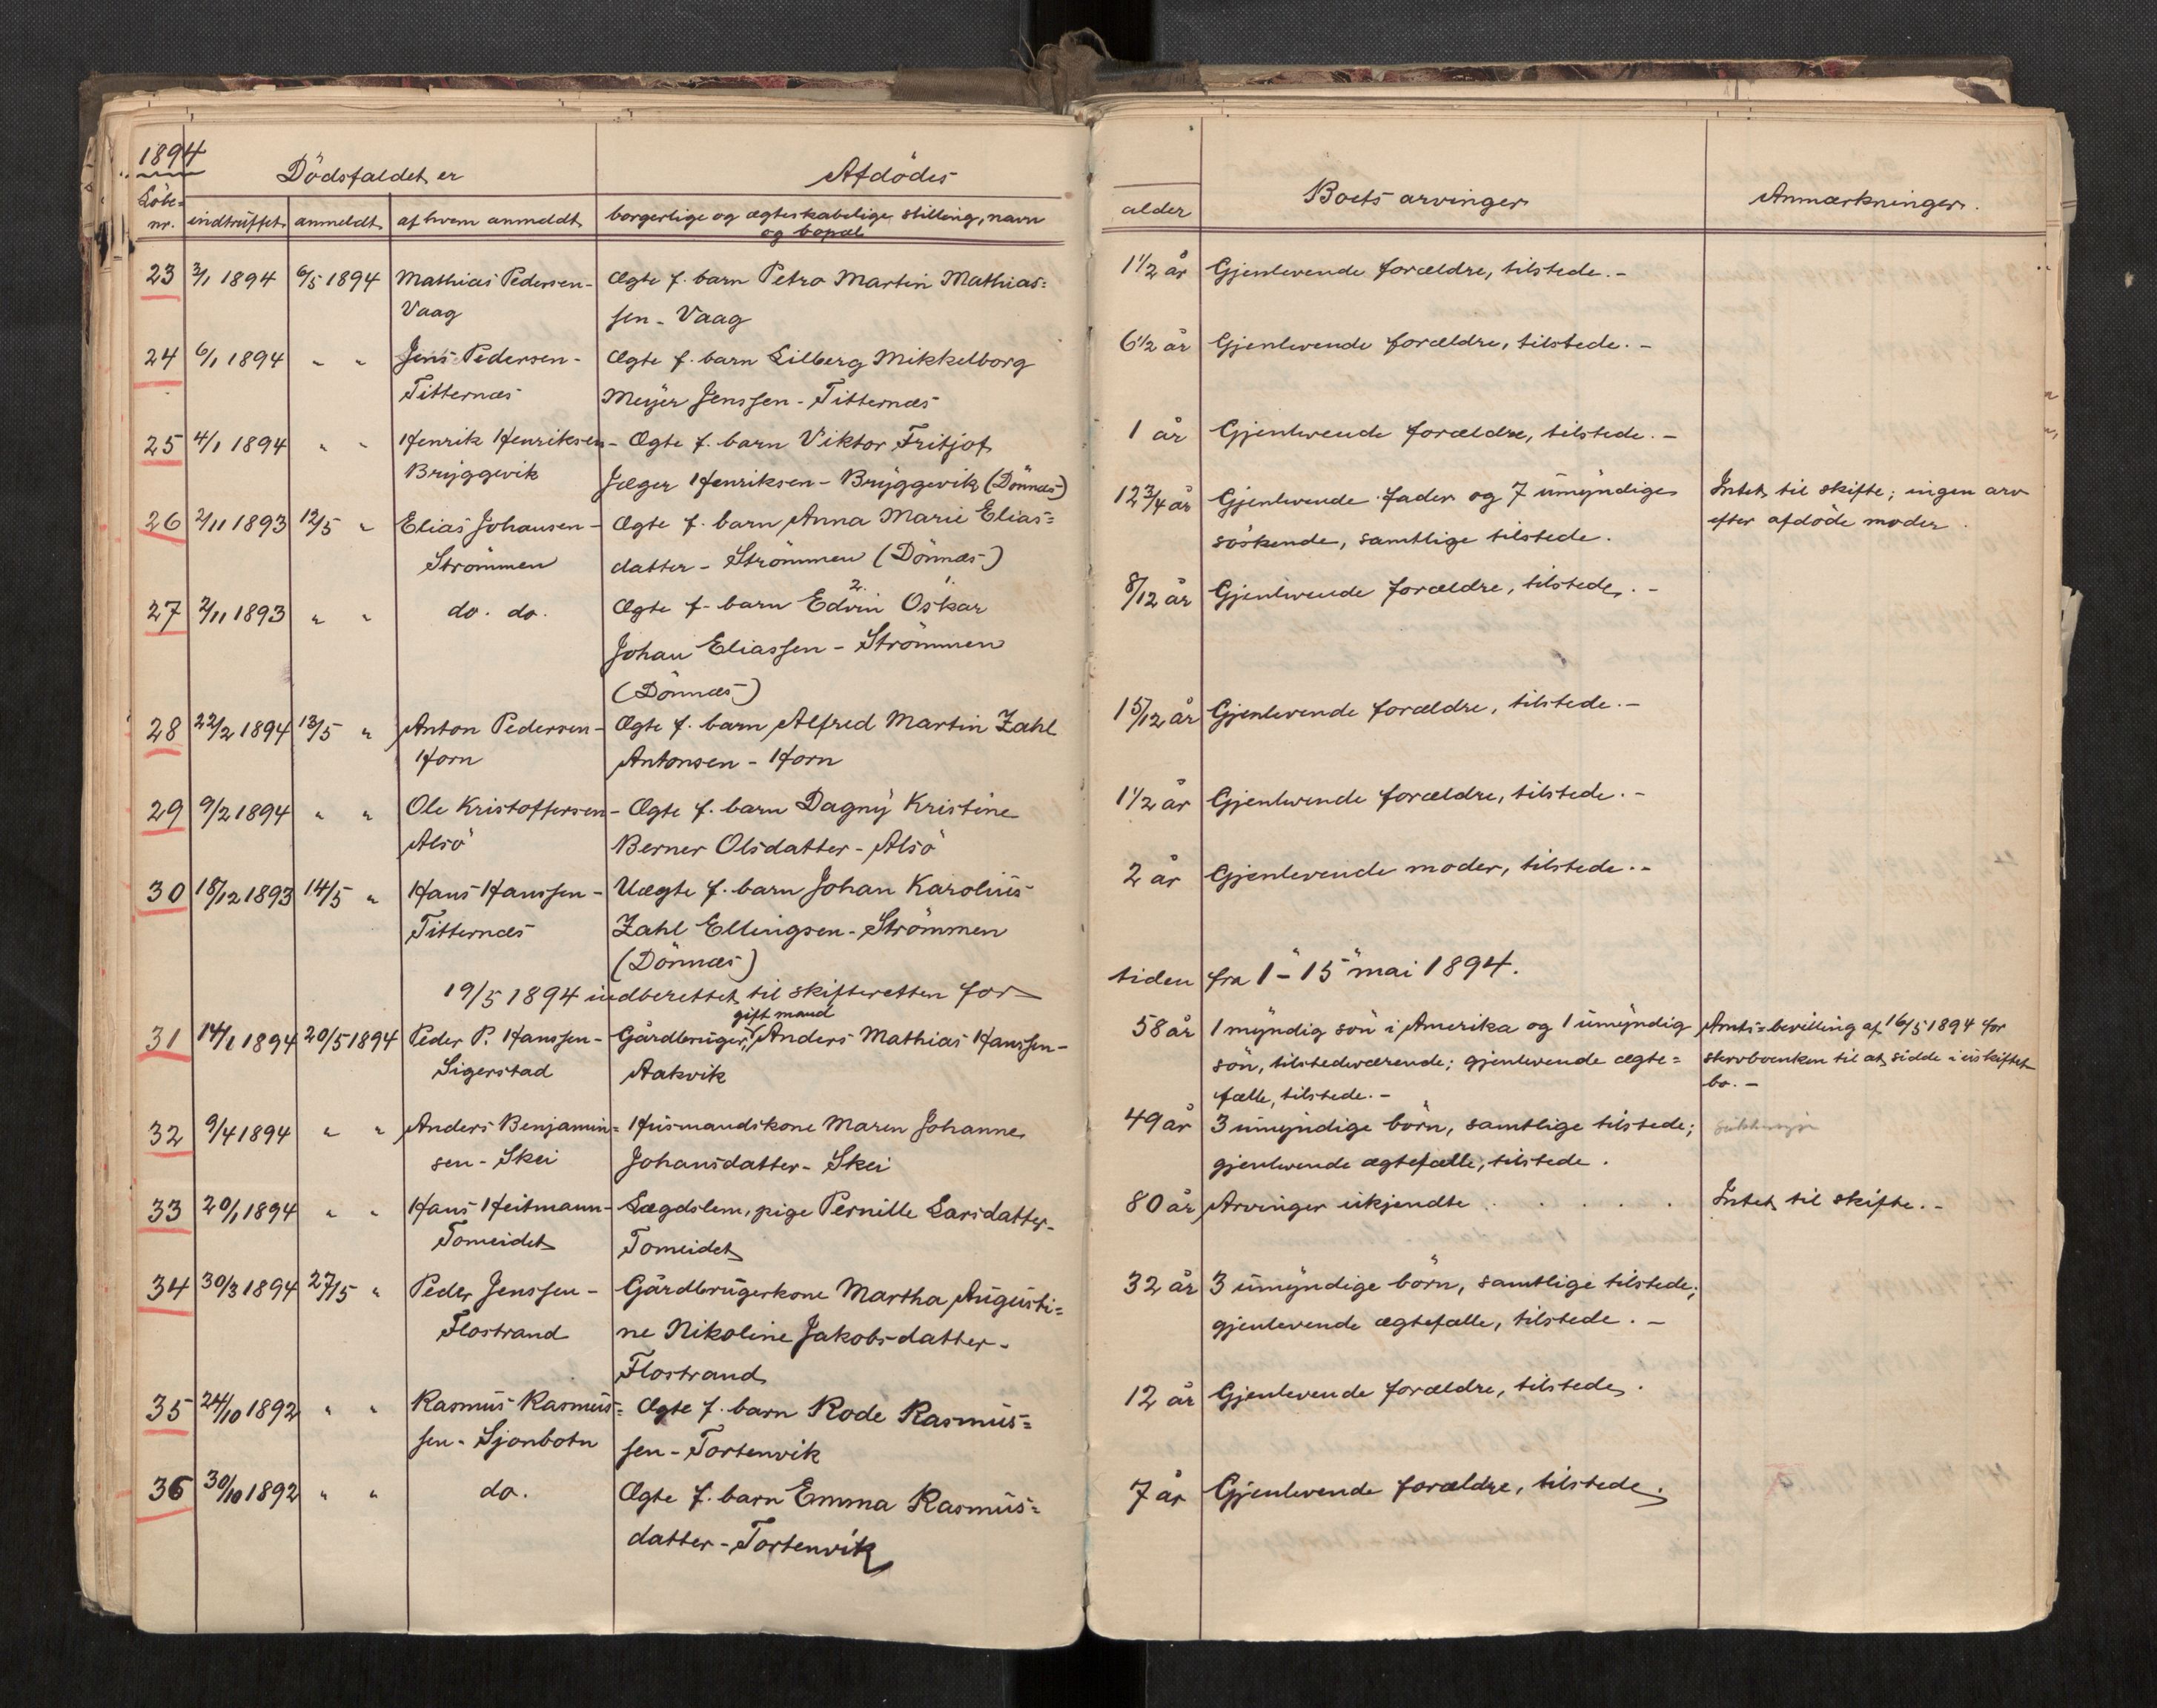 1894
Dödsfaldet er
Afdödes
Löbe-
nr.
indtruffet
anmeldt
af hvem anmeldt
borgerlige og ægteskabelige stilling, navn
og bopæl
alder
Boets arvinger
Anmærkninger.
23 3/1 1894 6/5 1894 Mathias Pedersen- Ægte f. barn Petra Martin Mathias= 1 1/2 år Gjenlevende forældre, tilstede.-
Vaag sen - Vaag
24 6/1 1894 " " Jens Pedersen- Ægte f. barn Lilberg Mikkelborg 6 1/2 år Gjenlevende forældre, tilstede.-
Titternæs Meyer Jenssen - Titternæs
25 4/1 1894 " " Henrik Henriksen- Ægte f. barn Viktor Fritjof 1 år Gjenlevende forældre, tilstede.-
Bryggevik Jæger Henriksen - Bryggevik (Dönnæs)
26 2/11 1893 12/5 " Elias Johansen- Ægte f. barn Anna Marie Elias= 12 3/4 år Gjenlevende fader og 7 umyndige Intet til skifte; ingen arv
Strömmen datter - Strömmen (Dönnæs) söskende, samtlige tilstede. efter afdöde moder.
27 2/11 1893 " " do. do. Ægte f. barn Edvin 2. Oskar 8/12 år Gjenlevende forældre, tilstede.-
Johan Eliassen - Strömmen
(Dönnæs)
28 22/2 1894 13/5 " Anton Pedersen- Ægte f. barn Alfred Martin Zahl 15/12 år Gjenlevende forældre, tilstede.-
Horn Antonsen - Horn
29 9/2 1894 " " Ole Kristoffersen- Ægte f. barn Dagny Kristine 1 1/2 år Gjenlevende forældre, tilstede.-
Alsö Berner Olsdatter - Alsö
30 18/12 1893 14/5 " Hans Hanssen- Uægte f. barn Johan Karolius 2 år Gjenlevende moder, tilstede.-
Titternæs Zahl Ellingsen - Strömmen
(Dönnæs)
19/5 1894 indberettet til skifteretten for tiden fra 1 - 15 mai 1894.
gift mand
31 14/1 1894 20/5 1894 Peder P. Hanssen- Gårdbruger, Anders Mathias Hanssen- 58 år 1 myndig sön i Amerika og 1 umyndig Amts=bevilling af 16/5 1894 for
Sigerstad Aakvik sön, tilstedeværende; gjenlevende ægte= stervboenken til at sidde i uskiftet
fælle, tilstede.- bo.-
32 9/4 1894 " " Anders Benjamin= Husmandskone Maren Johanne 49 år 3 umyndige börn, samtlige tilstede;
sen - Skei Johansdatter - Skei gjenlevende ægtefælle, tilstede.
33 20/1 1894 " " Hans Heitmann- Lægdslem, pige Pernille Larsdatter- 80 år Arvinger ukjendte . . . . . Intet til skifte.-
Tomeidet Tomeidet
34 30/3 1894 27/5 " Peder Jenssen- Gårdbrugerkone Martha Augusti= 32 år 3 umyndige börn, samtlige tilstede;
Flostrand ne Nikoline Jakobsdatter- gjenlevende ægtefælle, tilstede.-
Flostrand
35 24/10 1892 " " Rasmus Rasmus= Ægte f. barn Rode Rasmus= 12 år Gjenlevende forældre, tilstede.
sen - Sjonbotn sen - Tortenvik
36 30/10 1892 " " do. Ægte f. barn Emma Rasmus= 7 år Gjenlevende forældre, tilstede.
datter - Tortenvik